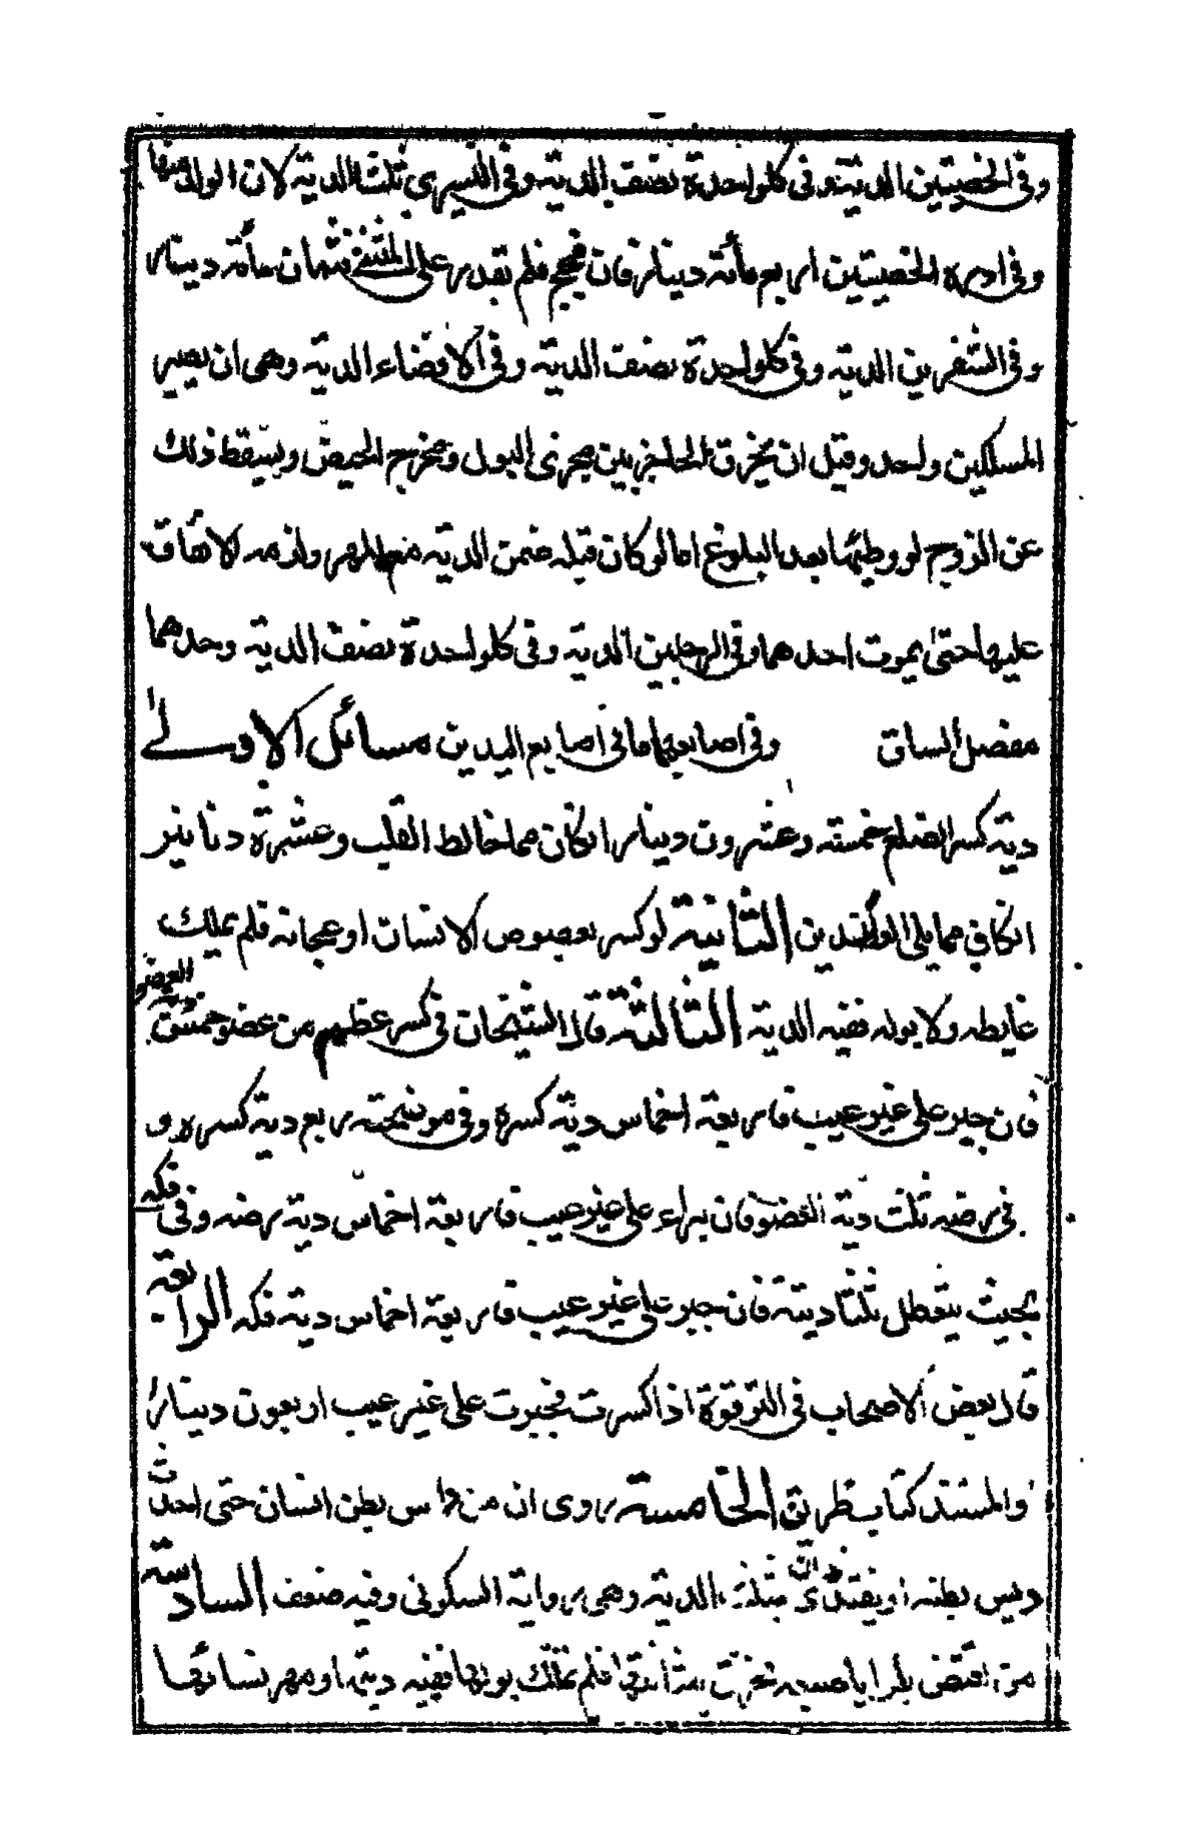 وفي الخصيتين الدية وفي كلواحدة نصف الدية وفي اليسرى ثلث الدية لان الولد منها
وفي ادرة الخصيتين اربع مأئة دينار فان فحج فلم يقدر على المشي فثمان مأئة دينار
وفي الشفرين الدية وفي كلواحدة نصف الدية وفي الافضاء الدية وهى ان يصير
المسلكين واحد وقيل ان يخرق الحاجز بين مجرى البول ومخرج الحيض ويسقط ذلك
عن الزوج لو وطيها بعد البلوغ اما لو كان قبله ضمن الدية مع المهر ولزمه الانفاق
عليها حتى يموت احدهما وفي الرجلين الدية وفي كلواحدة نصف الدية وحدهما
مفصل الساق وفي اصابعهما ما في اصابع اليدين مسائل الاولى
دية كسر الضلع خمسة وعشرون دينار انكان مما خالط القلب وعشرة دنانير
انكان مما يلى العضدين الثانية لو كسر بعصوص الانسان او عجانه فلم يملك
غايطه ولا بوله ففيه الدية الثالثة قال الشيخان في كسر عظم من عضو خمس دية العضو
فان جبر على غير عيب فاربعة اخماس دية كسره وفي موضحته ربع دية كسره و
في رضه ثلث دية العضو فان براء على غير عيب فاربعة اخماس دية رضه وفي فكه
بحيث يتعطل ثلثا ديته فان جبر على غير عيب فاربعة اخماس دية فكه الرابعة
قال بعض الاصحاب في الترقوة اذا كسرت فجبرت على غير عيب اربعون دينارا
والمستند كتاب ظريف الخامسة روى ان من داس بطن انسان حتى احدث
ديس بطنه او يفتدى ذلك بثلث الدية وهى رواية السكونى وفيه ضعف السادسة
من افتض بكرا باصبعه فخرق مثانتها فلم تملك بولها ففيه ديتها ومهر نسائها